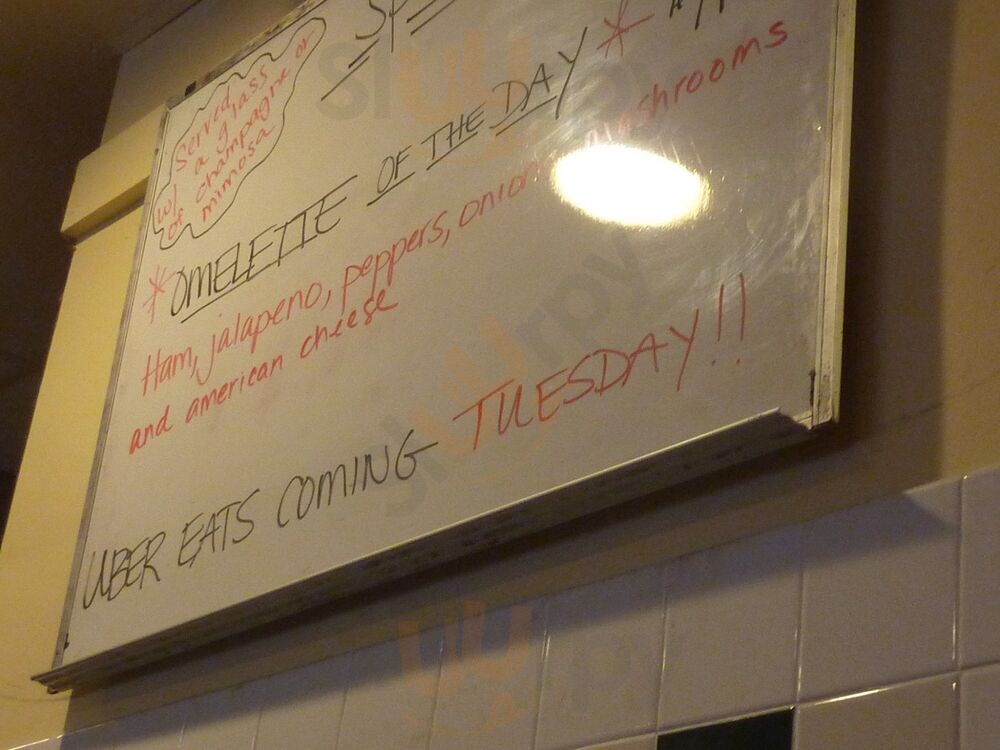 Served
w/ a glass
of champagne or
mimosa
*OMELETTE OF THE DAY*
Ham, jalapeno, peppers, onion mushrooms
and american cheese
UBER EATS COMING TUESDAY!!